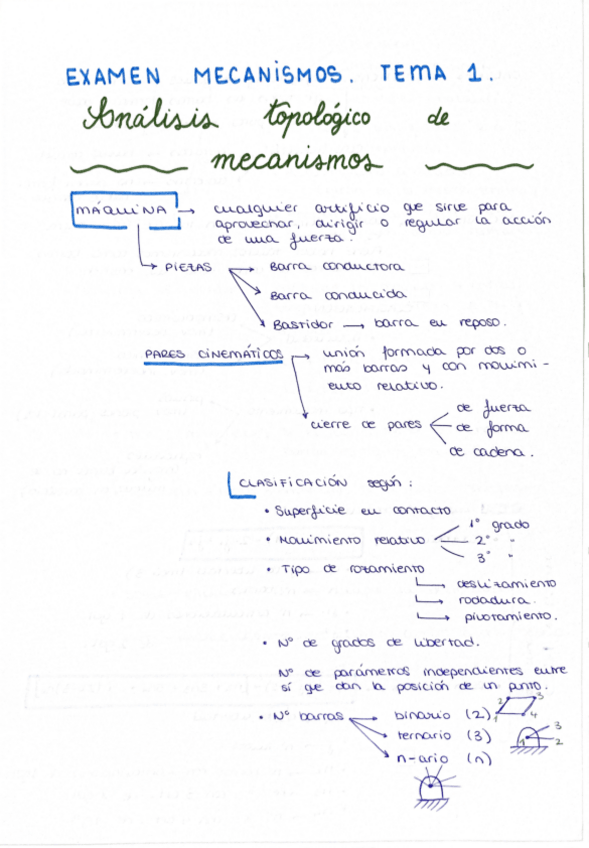 EXAMEN MECANISMOS. TEMA 1.
Análisis topológico de
mecanismos
MÁQUINA → cualquier artificio que sirve para
aprovechar, dirigir o regular la acción
de una fuerza.
PIEZAS → Barra conductora
Barra conducida
Bastidor → barra en reposo.
PARES CINEMÁTICOS → unión formada por dos o
más barras y con movimi-
ento relativo.
cierre de pares
de fuerza
de forma
de cadena.
CLASIFICACIÓN según:
• Superficie en contacto
• Movimiento relativo
1º grado
2º "
3º "
• Tipo de rozamiento
→ deslizamiento
→ rodadura.
→ pivotamiento.
• Nº de grados de libertad.
Nº de parámetros independientes entre
sí que dan la posición de un punto.
• Nº barras → binario (2)
1 2 3 4
ternario (3)
1 3 2
n-ario (n)